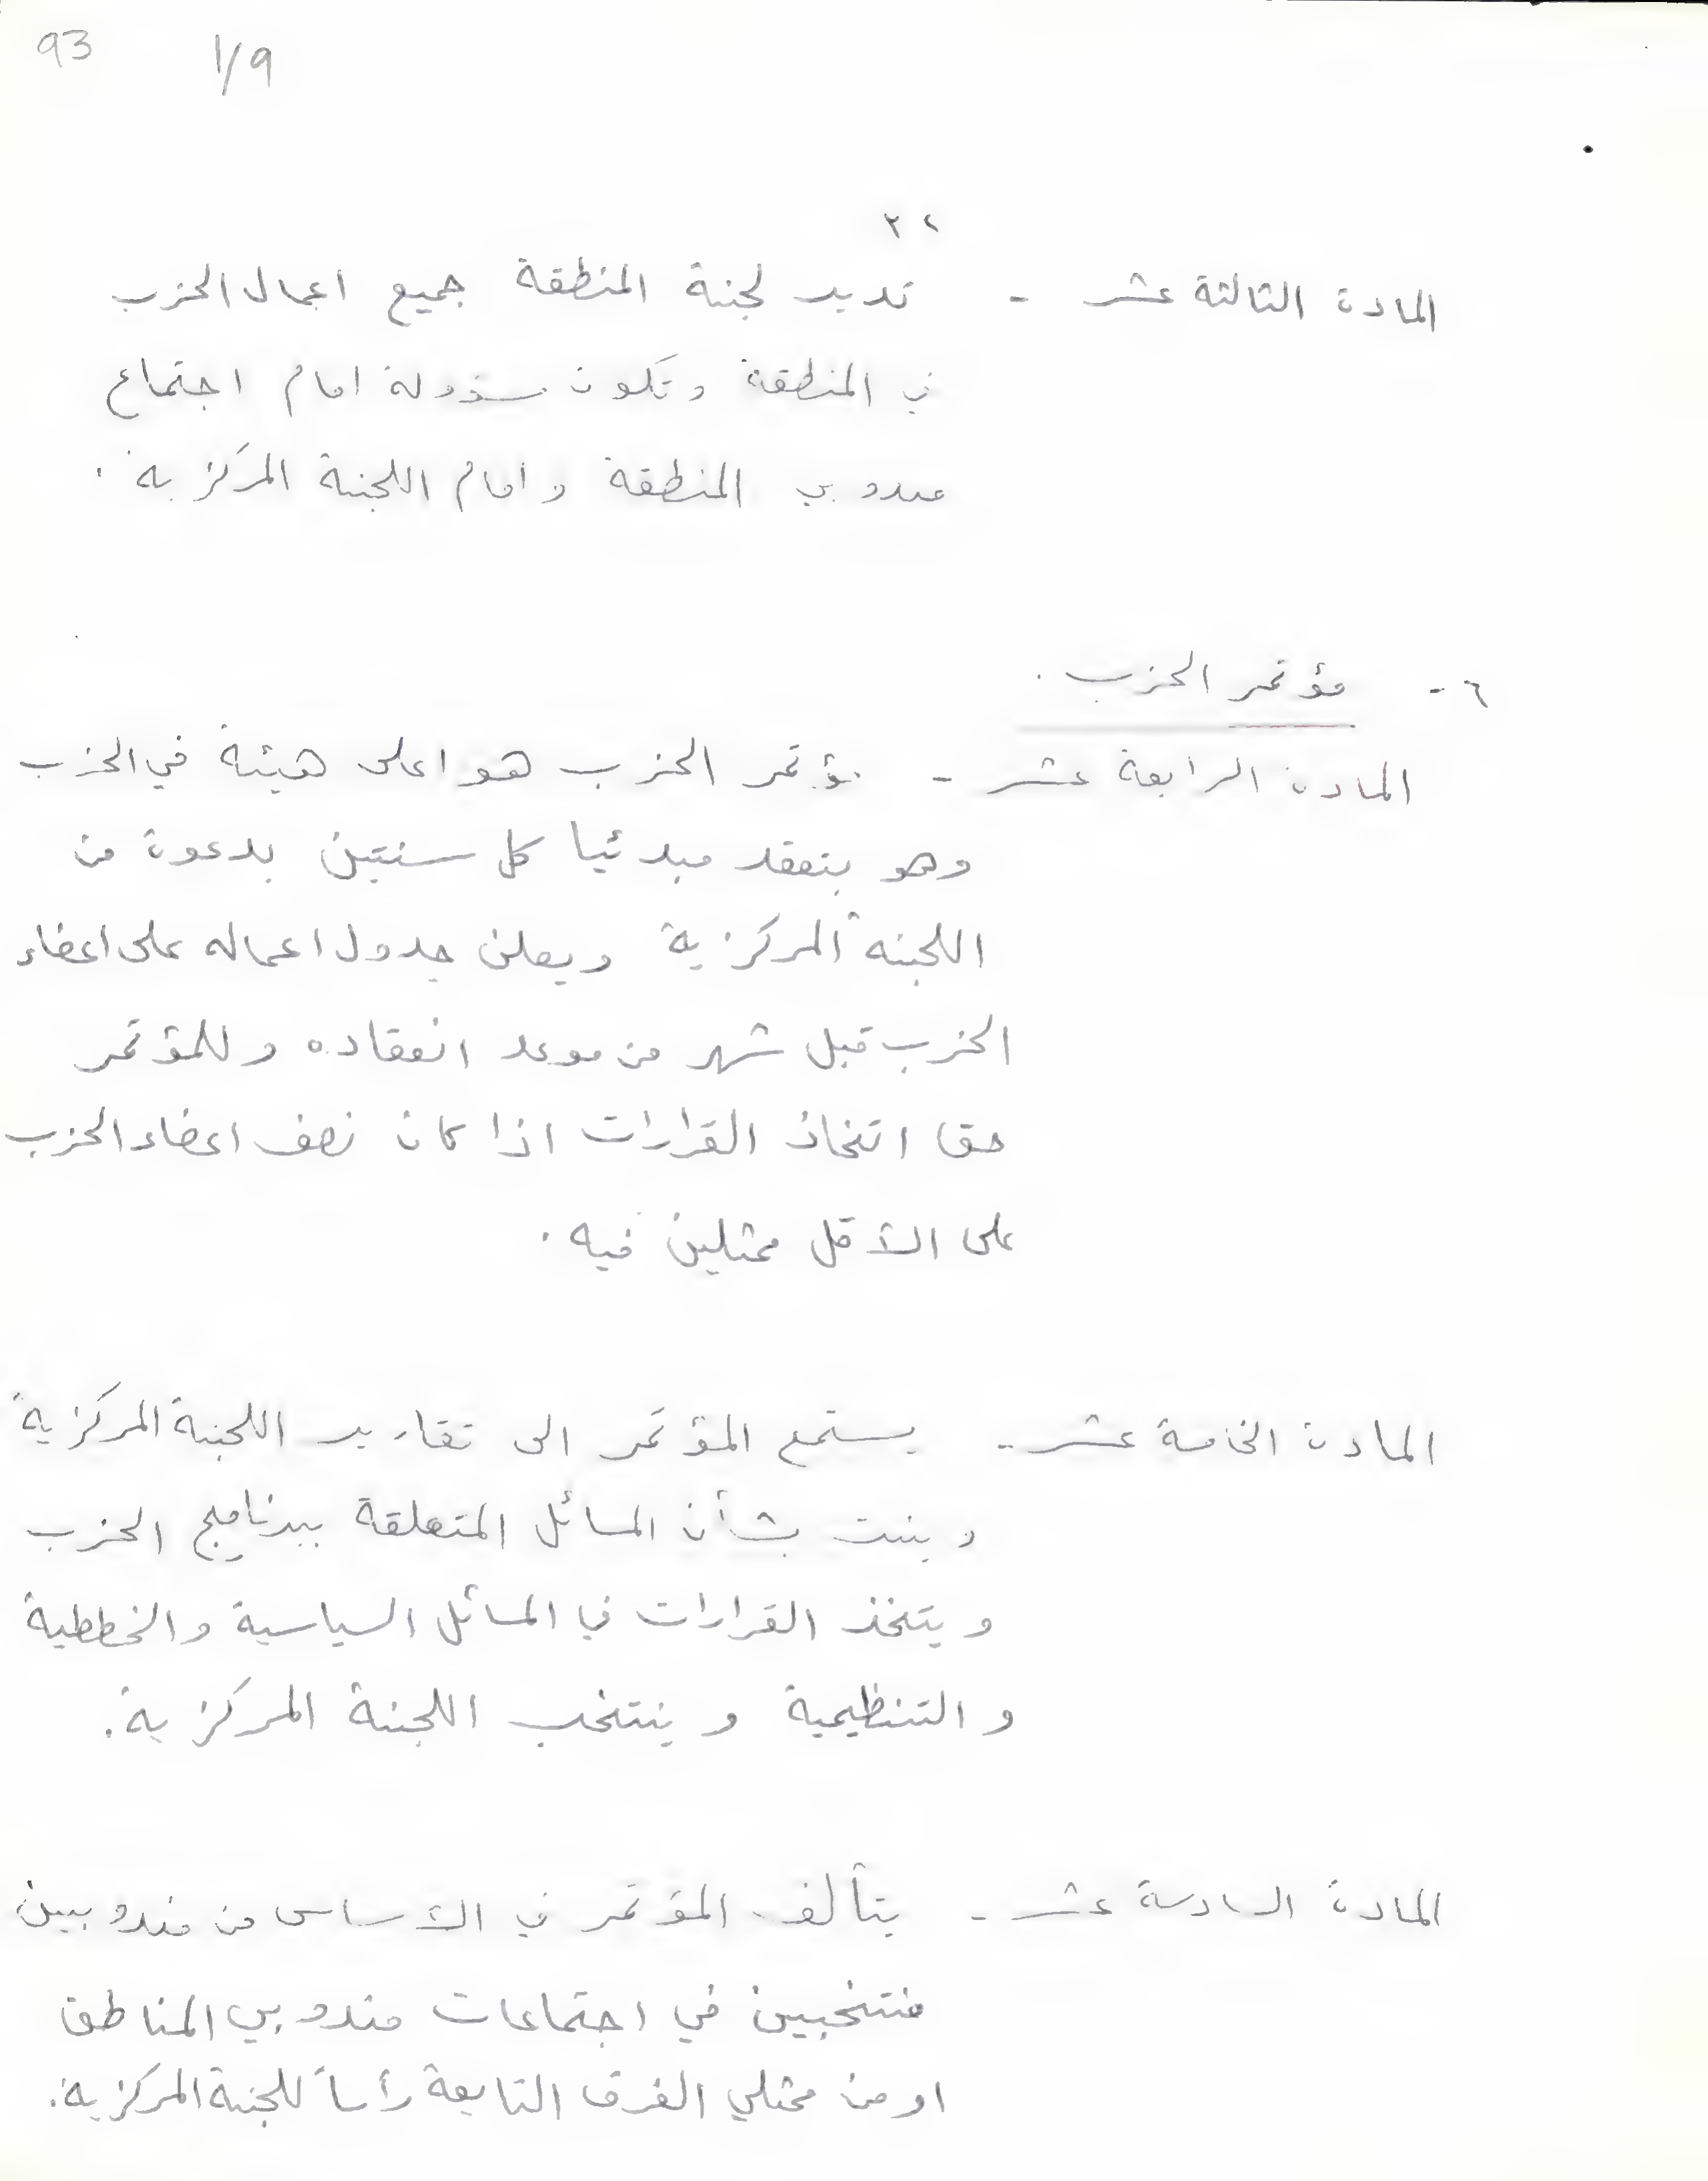 93 1/9
٢٢
المادة الثالثة عشر - تدير لجنة المنطقة جميع اعمال الحزب
في المنطقة وتكون مسؤولة امام اجتماع
مندوبي المنطقة وامام اللجنة المركزية .
٦ - مؤتمر الحزب .
المادة الرابعة عشر - مؤتمر الحزب هو اعلى هيئة في الحزب
وهو ينعقد مبدئيا كل سنتين بدعوة من
اللجنة المركزية ويعلن جدول اعماله على اعضاء
الحزب قبل شهر من موعد انعقاده وللمؤتمر
حق اتخاذ القرارات اذا كان نصف اعضاء الحزب
على الأقل ممثلين فيه .
المادة الخامسة عشر - يستمع المؤتمر الى تقارير اللجنة المركزية
ويبت بشأن المسائل المتعلقة ببرنامج الحزب
ويتخذ القرارات في المسائل السياسية والخططية
والتنظيمية وينتخب اللجنة المركزية .
المادة السادسة عشر - يتألف المؤتمر في الأساس من مندوبين
منتخبين في اجتماعات مندوبي المناطق
او من ممثلي الفرق التابعة رأساً للجنة المركزية .